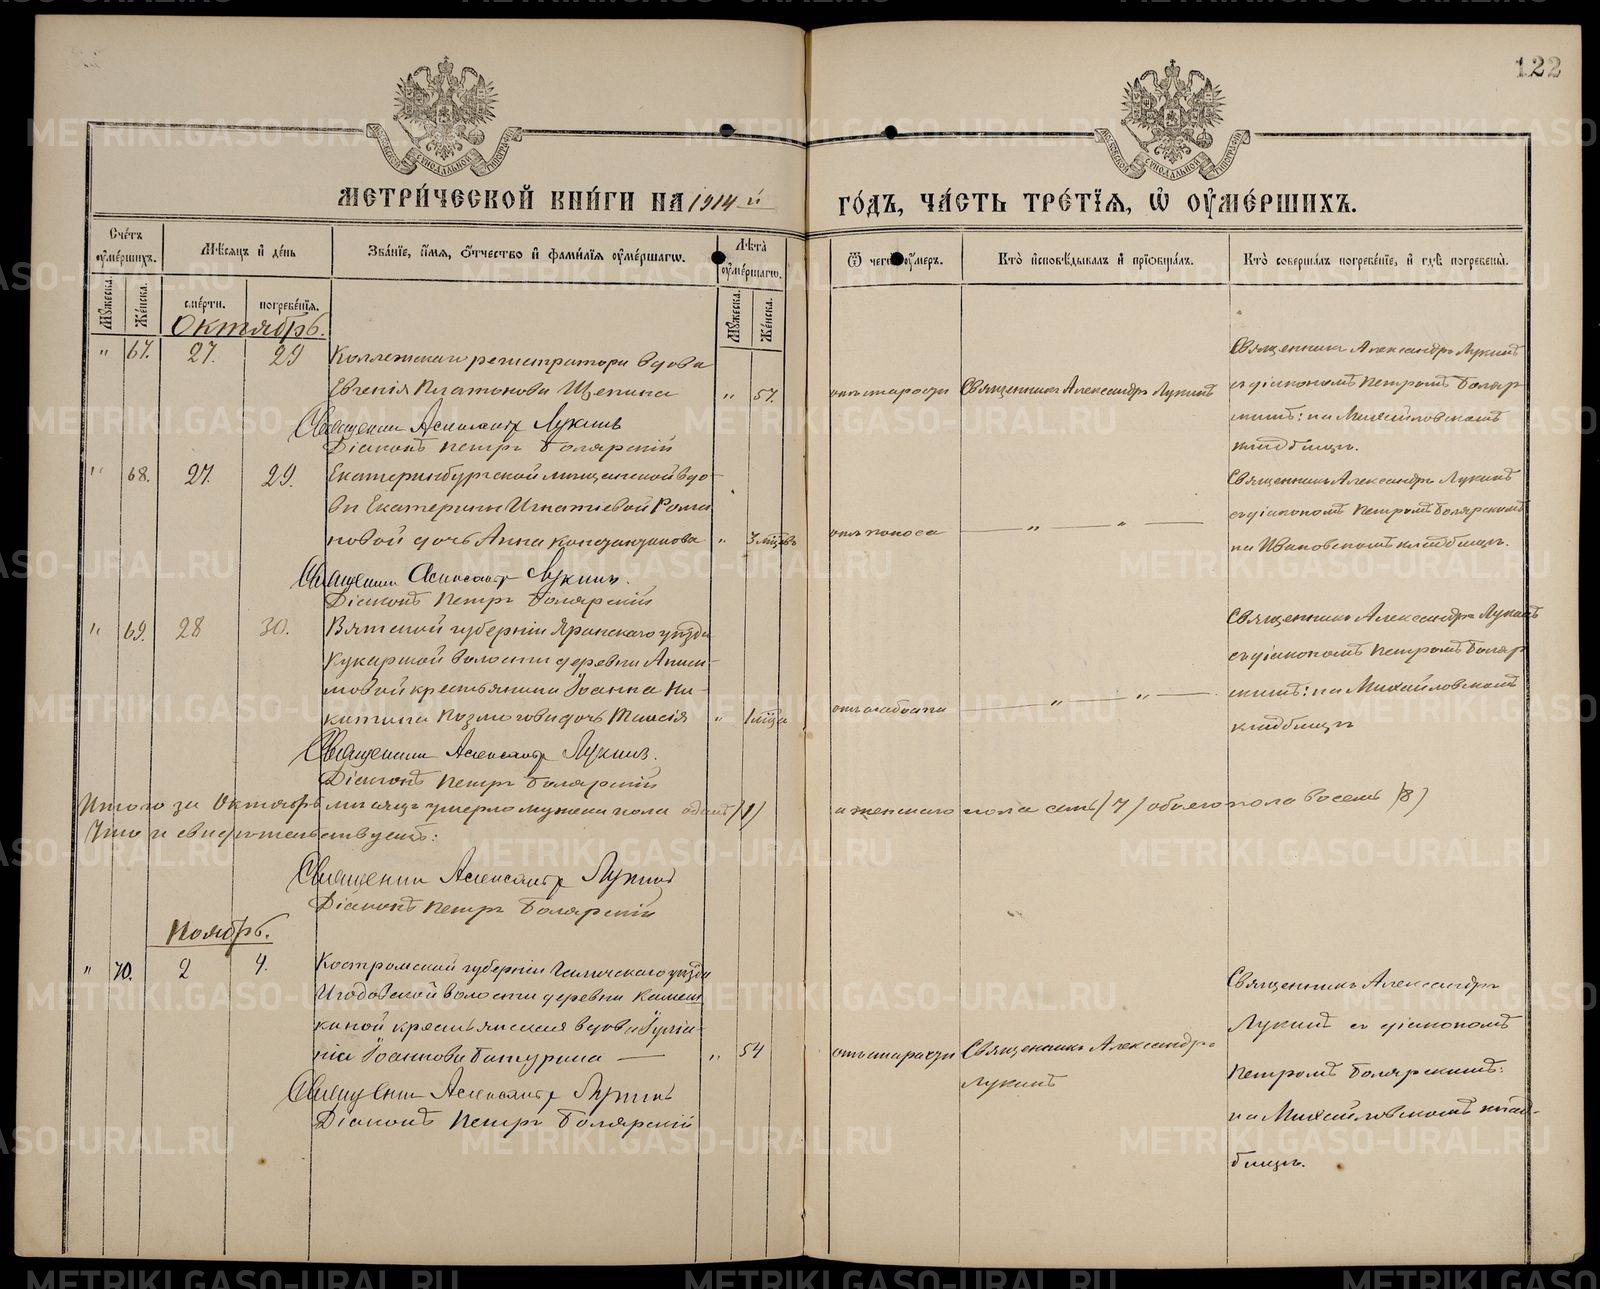 122
МЕТРИ́ЧЕСКОЙ КНИ́ГИ НА 1914 й ГО́ДЪ, ЧА́СТЬ ТРЕ́ТЇѦ, Ѡ҆ ОУ҆МЕ́РШИХЪ.
Сче́тъ оу҆ме́ршихъ.
Мѣ́сѧцъ и҆ де́нь
Зва́нїе, и҆́мѧ, ѻ҆́тчество и҆ фами́лїѧ оу҆ме́ршагѡ.
Лѣ́та оу҆ме́ршагѡ.
Ѿ чегѡ̀ оу҆́меръ.
Кто̀ и҆сповѣ́дывалъ и҆ прїѡбща́лъ.
Кто̀ соверша́лъ погребе́нїе, и҆ гдѣ̀ погребены̀.
Мꙋ́жеска.
Же́нска.
сме́рти.
погребе́нїѧ.
Мꙋ́жеска.
Же́нска.
Октябрь.
" 67. 27. 29 Коллежскаго регистратора вдова
Евгенія Платонова Щепина " 57.
Священник Александр Лукинъ
Діаконъ Петръ Болярскій
отъ старости
Священникъ Александръ Лукинъ
Священникъ Александръ Лукинъ
съ діакономъ Петромъ Боляр
скимъ: на Михайловскомъ
кладбищѣ.
" 68. 27. 29. Екатеринбургской мѣщанской вдо-
вы Екатерины Игнатиевой Рома
новой дочь Анна " 3 мѣсяцъ
Священник Александр Лукинъ.
Діаконъ Петръ Болярскій
отъ поноса
— " — " —
Священникъ Александръ Лукинъ
съ діакономъ Петромъ Болярскимъ
на Ивановскомъ кладбищѣ.
" 69. 28 30. Вятской губерніи Яранскаго уѣзда
Кукарской волости деревни
крестьянина Іоанна Ни-
китина дочь Таисія " 1 мѣсяца
Священник Александр Лукинъ.
Діаконъ Петръ Болярскій
отъ слабости
— " — " —
Священникъ Александръ Лукинъ
съ діакономъ Петромъ Боляр
скимъ: на Михайловскомъ
кладбищѣ
Итого за Октябрь мѣсяцъ умерло мужска пола одинъ (1) а женскаго пола семь (7) обоего пола восемь (8)
Что и свидѣтельствуемъ:
Священник Александр Лукинъ
Діаконъ Петръ Болярскій
Ноябрь.
" 70. 2 4. Костромской губерніи Галичскаго уѣзда
Игодовской волости деревни
крестьянская вдова Іуліа-
нія Іоаннова Батурина — " 54
Священник Александр Лукинъ
Діаконъ Петръ Болярскій
отъ старости
Священникъ Александръ
Лукинъ
Священникъ Александръ
Лукинъ съ діакономъ
Петромъ Болярскимъ:
на Михайловскомъ клад-
бищѣ.
METRIKI.GASO-URAL.RU